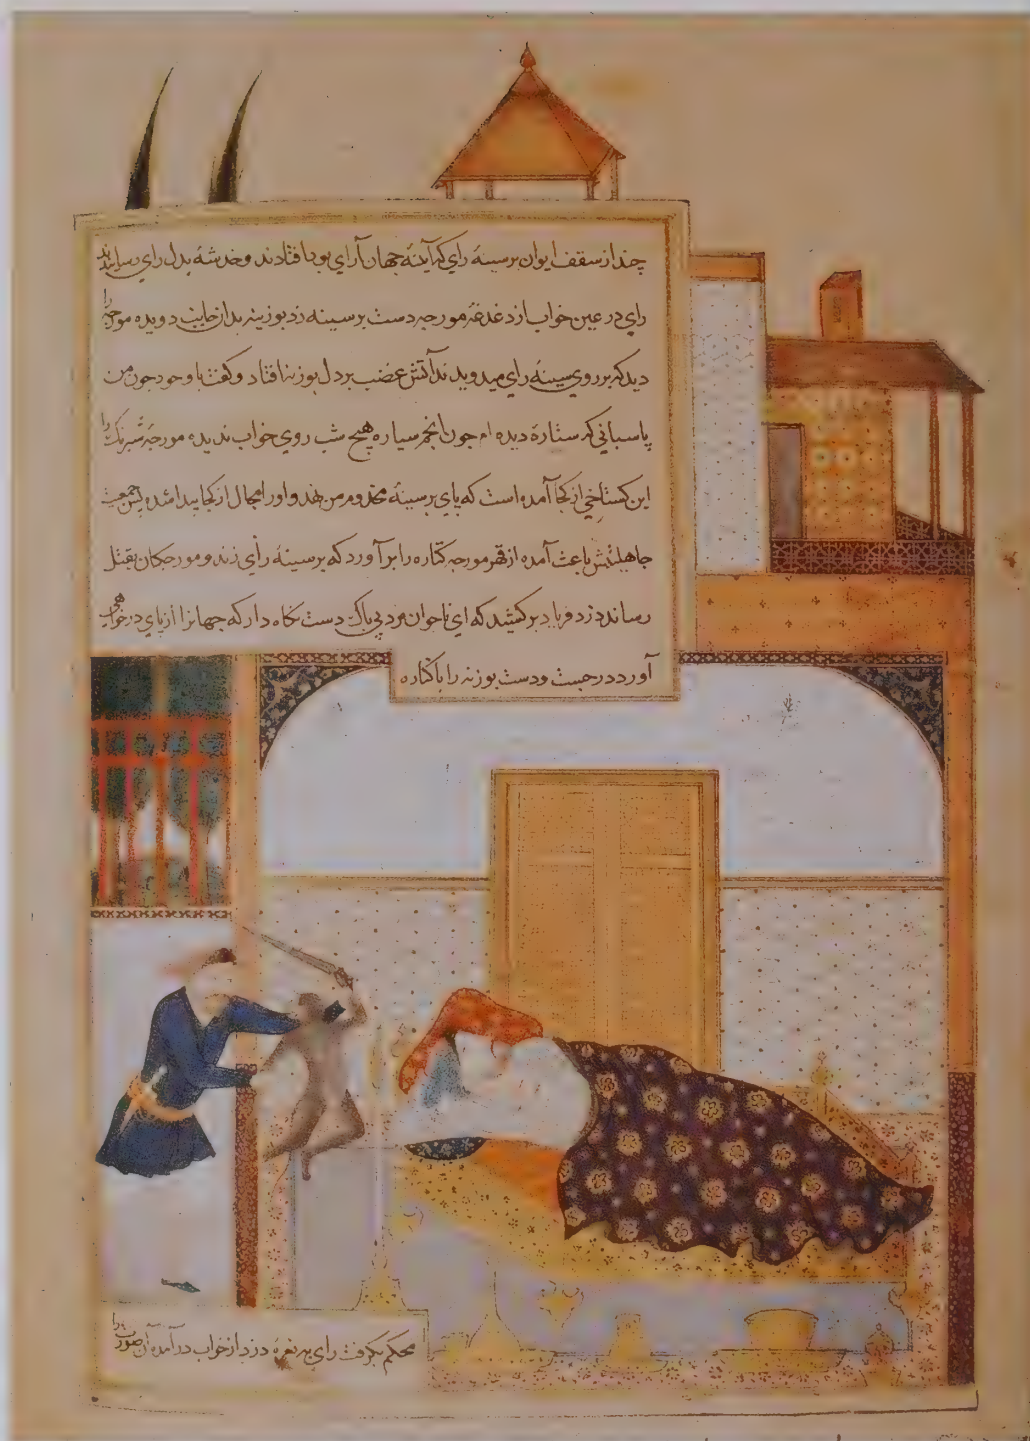 چند از سقف ایوان بر سینهٔ رای که آینهٔ جهان آرای بود افتادند و خدشه بدل رای رسانیدند
رای در عین خواب از دغدغهٔ مورچه دست بر سینه زد بوزینه بدان جانب دویده مورچه را
دید که بر روی سینهٔ رای میدویدند آتش غضب بر دل بوزنه افتاد و کفت با وجود جون من
پاسبانی که ستاره دیده ام جون انجم سیاره هیچ شب روی خواب ندیده مورچهٔ شبرنک را
این کستاخی از کجا آمده است که پای بر سینهٔ مخدوم من نهد و اورا مجال از کجا پیدا شده پس
جاهلیتش باعث آمده از قهر مورچه کتاره را بر آورد که بر سینهٔ رای زند و مورچکان بقتل
رساند دزد فریاد بر کشید که ای ناجوانمرد بی باک دست نکاه دار که جهانرا از پای در خواهی
آورد در جست و دست بوزنه را با کتاره
محکم بکرفت رای به نعرهٔ دزد از خواب در آمده آن صورت را